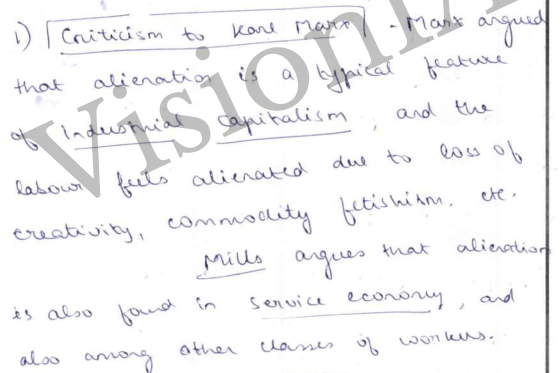 1) Criticism to Karl Marx - Marx argued
that alienation is a typical feature
of industrial capitalism, and the
labour feels alienated due to loss of
creativity, commodity fetishism. etc.
Mills argues that alienation
is also found in service economy, and
also among other classes of workers.
VisionIA